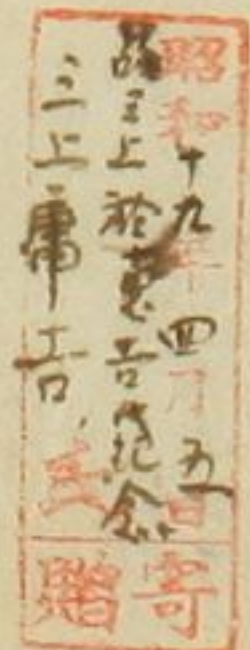 昭和十九年四月五日
故三上於菟吉氏記念
三上庸吉氏
寄贈